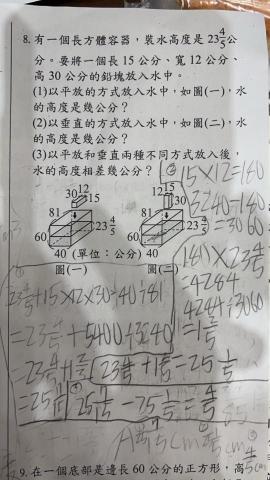 8. 有一個長方體容器，裝水高度是 23 4/5 公
分。要將一個長 15 公分、寬 12 公分、
高 30 公分的鉛塊放入水中。
(1)以平放的方式放入水中，如圖(一)，水
的高度是幾公分？
(2)以垂直的方式放入水中，如圖(二)，水
的高度是幾公分？
(3)以平放和垂直兩種不同方式放入後，
水的高度相差幾公分？
30 12 15
81
60
23 4/5
40
圖(一)
(單位：公分)
12 15
30
81
60
23 4/5
40
圖(二)
② 15×12=180
3240-180
=3060
180×23 4/5
=4284
4284÷3060
=1 2/5
23 4/5+15×12×30÷40÷81
=23 4/5+5400÷3240
23 4/5+1 2/5=25 1/5
9. 在一個底部是邊長 60 公分的正方形，高